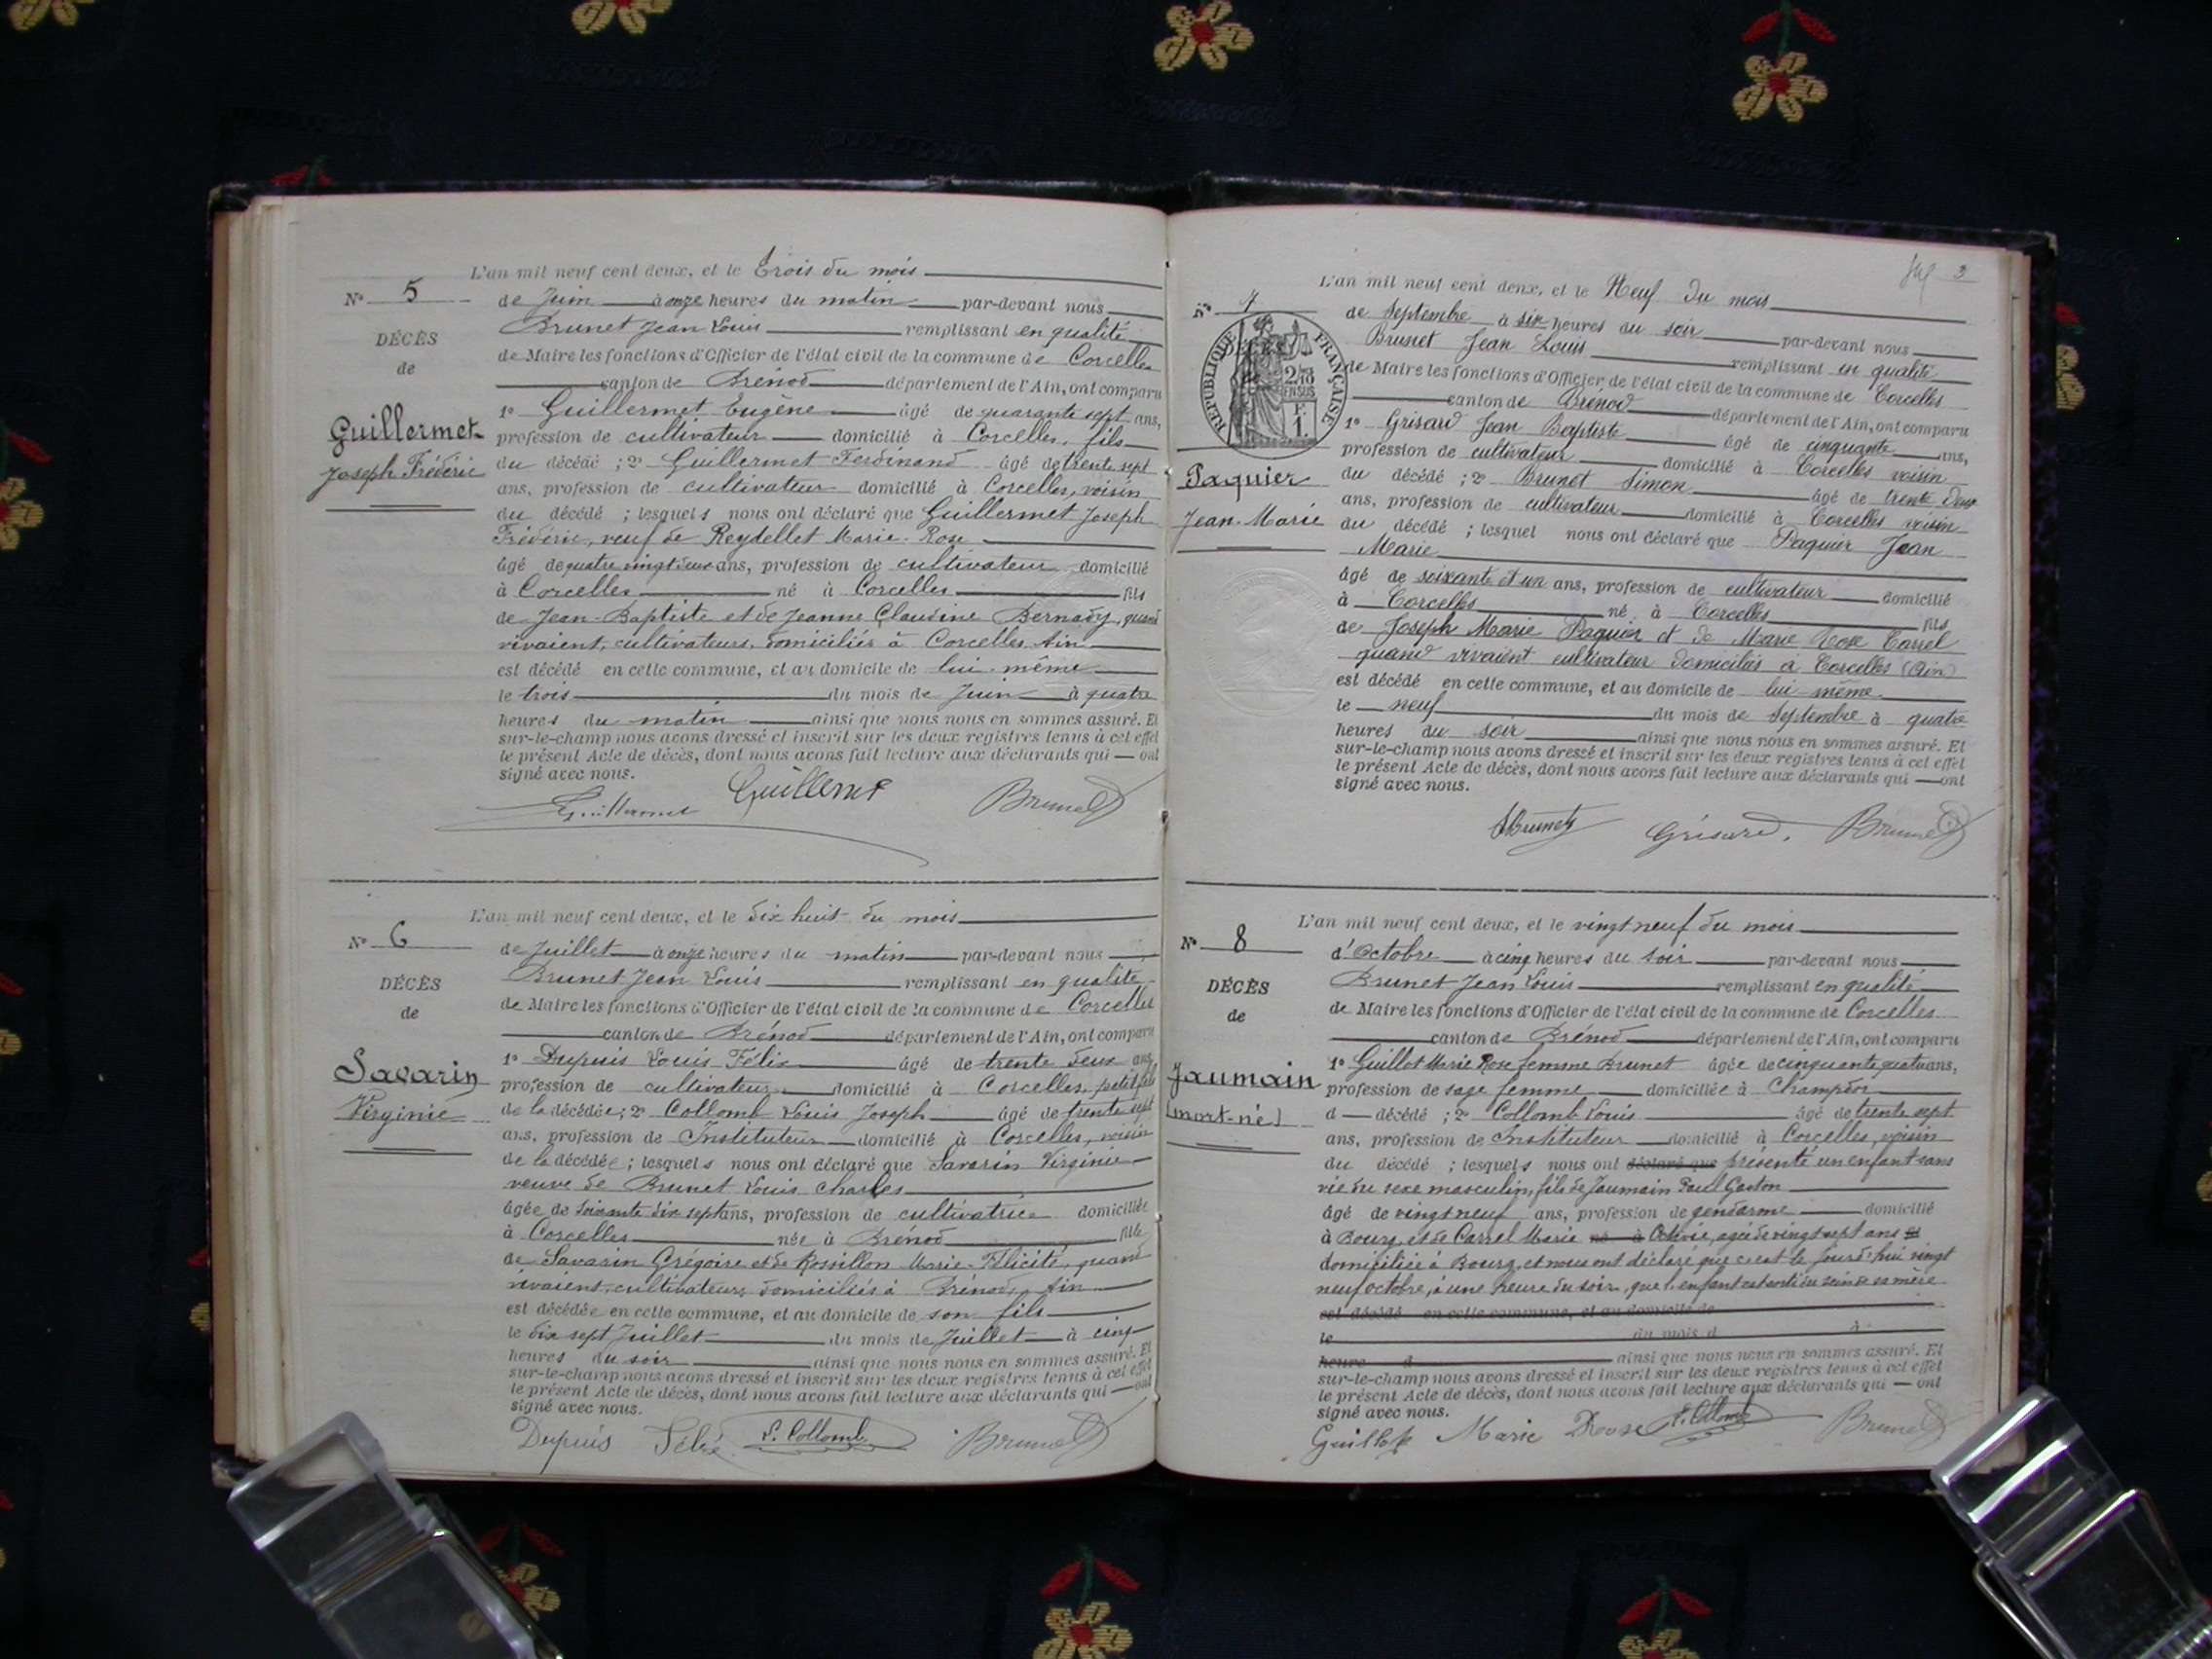 L'an mil neuf cent deux, et le trois du mois
N° 5
de Juin à onze heures du matin par-devant nous
Brunet Jean Louis remplissant en qualité
DÉCÈS
de Maire les fonctions d'Officier de l'état civil de la commune de Corcelles
de
canton de Brénod département de l'Ain, ont comparu
1° Guillermet Eugène âgé de quarante sept ans,
Guillermet
profession de cultivateur domicilié à Corcelles, fils
Joseph Frédéric
du décédé ; 2° Guillermet Ferdinand âgé de trente sept
ans, profession de cultivateur domicilié à Corcelles, voisin
du décédé ; lesquels nous ont déclaré que Guillermet Joseph
Frédéric, veuf de Reydellet Marie-Rose
âgé de quatre vingt deux ans, profession de cultivateur domicilié
à Corcelles né à Corcelles fils
de Jean-Baptiste et de Jeanne Claudine Bernady, quand
vivaient, cultivateurs, domiciliés à Corcelles, Ain
est décédé en cette commune, et au domicile de lui-même
le trois du mois de Juin à quatre
heures du matin ainsi que nous nous en sommes assuré. Et
sur-le-champ nous avons dressé et inscrit sur les deux registres tenus à cet effet
le présent Acte de décès, dont nous avons fait lecture aux déclarants qui — ont
signé avec nous.
Guillermet Guillermet Brunet
L'an mil neuf cent deux, et le dix huit du mois
N° 6
de Juillet à onze heures du matin par-devant nous
Brunet Jean Louis remplissant en qualité
DÉCÈS
de Maire les fonctions d'Officier de l'état civil de la commune de Corcelles
de
canton de Brénod département de l'Ain, ont comparu
1° Dupuis Louis Félix âgé de trente deux ans
Savarin
profession de cultivateur domicilié à Corcelles, petit fils
Virginie
de la décédée ; 2° Collomb Louis Joseph âgé de trente sept
ans, profession de Instituteur domicilié à Corcelles, voisin
de la décédée ; lesquels nous ont déclaré que Savarin Virginie
veuve de Brunet Louis Charles
âgée de soixante dix sept ans, profession de cultivatrice domiciliée
à Corcelles née à Brénod fille
de Savarin Grégoire et de Rossillon Marie-Félicité, quand
vivaient, cultivateurs, domiciliés à Brénod, Ain
est décédée en cette commune, et au domicile de son fils
le dix sept Juillet du mois de Juillet à cinq
heures du soir ainsi que nous nous en sommes assuré. Et
sur-le-champ nous avons dressé et inscrit sur les deux registres tenus à cet effet
le présent Acte de décès, dont nous avons fait lecture aux déclarants qui — ont
signé avec nous.
Dupuis Félix L. Collomb Brunet
3
L'an mil neuf cent deux, et le Neuf du mois
N° 7
de Septembre à six heures du soir par-devant nous
Brunet Jean Louis remplissant en qualité
RÉPUBLIQUE FRANÇAISE
de Maire les fonctions d'Officier de l'état civil de la commune de Corcelles
canton de Brenod département de l'Ain, ont comparu
1° Grisard Jean Baptiste âgé de cinquante ans,
profession de cultivateur domicilié à Corcelles voisin
Paquier
du décédé ; 2° Brunet Simon âgé de trente deux
Jean-Marie
ans, profession de cultivateur domicilié à Corcelles voisin
du décédé ; lesquel nous ont déclaré que Paquier Jean
Marie
âgé de soixante et un ans, profession de cultivateur domicilié
à Corcelles né à Corcelles fils
de Joseph Marie Paquier et de Marie Rose Carrel
quand vivaient cultivateur domiciliés à Corcelles (Ain)
est décédé en cette commune, et au domicile de lui-même
le neuf du mois de Septembre à quatre
heures du soir ainsi que nous nous en sommes assuré. Et
sur-le-champ nous avons dressé et inscrit sur les deux registres tenus à cet effet
le présent Acte de décès, dont nous avons fait lecture aux déclarants qui — ont
signé avec nous.
SBrunet Grisard. Brunet
L'an mil neuf cent deux, et le vingt neuf du mois
N° 8
d'Octobre à cinq heures du soir par-devant nous
Brunet Jean Louis remplissant en qualité
DÉCÈS
de Maire les fonctions d'Officier de l'état civil de la commune de Corcelles
de
canton de Brénod département de l'Ain, ont comparu
1° Guillot Marie Rose femme Brunet âgée de cinquante quatre ans,
Jaumain
profession de sage femme domiciliée à Champdor
(mort-né)
d — décédé ; 2° Collomb Louis âgé de trente sept
ans, profession de Instituteur domicilié à Corcelles, voisin
du décédé ; lesquels nous ont déclaré que présenté un enfant sans
vie du sexe masculin, fils de Jaumain Paul Gaston
âgé de vingt neuf ans, profession de gendarme domicilié
à Bourg, et de Carrel Marie né à Octavie, agée de vingt sept ans
domiciliée à Bourg, et nous ont déclaré que c'est le jourd'hui vingt
neuf octobre, à une heure du soir, que l'enfant est sorti du sein de sa mère
est décédé en cette commune, et au domicile de
le du mois d à
heure d ainsi que nous nous en sommes assuré. Et
sur-le-champ nous avons dressé et inscrit sur les deux registres tenus à cet effet
le présent Acte de décès, dont nous avons fait lecture aux déclarants qui — ont
signé avec nous.
Guillot Marie Rose L. Collomb Brunet